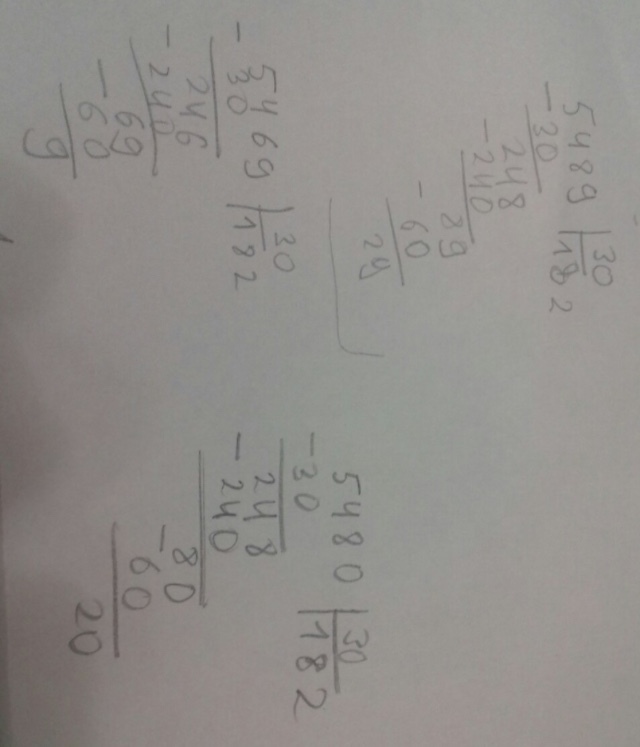 - 5489 | 30
30 | 182
248
- 240
89
- 60
29
- 5469 | 30
30 | 182
246
- 240
69
- 60
9
- 5480 | 30
30 | 182
248
- 240
80
- 60
20